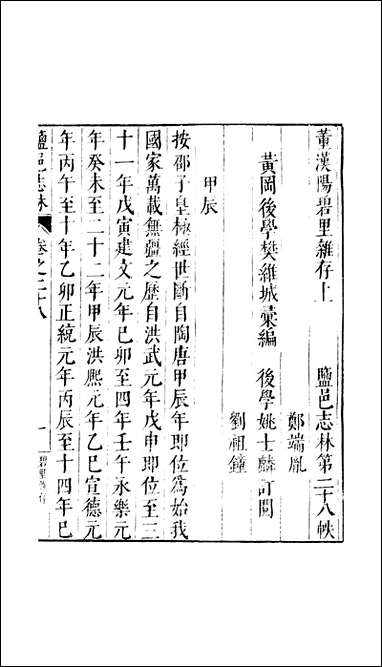 董漢陽碧里雜存上　鹽邑志林第二十八帙
鄭端胤
黃岡後學樊維城彙編　後學姚士麟訂閱
劉祖鐘
甲辰
按邵子皇極經世斷自陶唐甲辰年即位為始我
國家萬載無疆之歷自洪武元年戊申即位至三
十一年戊寅建文元年巳卯至四年壬午永樂元
年癸未至二十二年甲辰洪熙元年乙巳宣德元
年丙午至十年乙卯正統元年丙辰至十四年巳
鹽邑志林　卷之二十八　一　碧里雜存